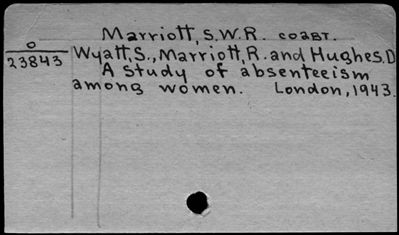 Marriott, S.W.R. соавт.
O
23843
Wyatt, S., Marriott, R. and Hughes. D
A study of absenteeism
among women. London, 1943.